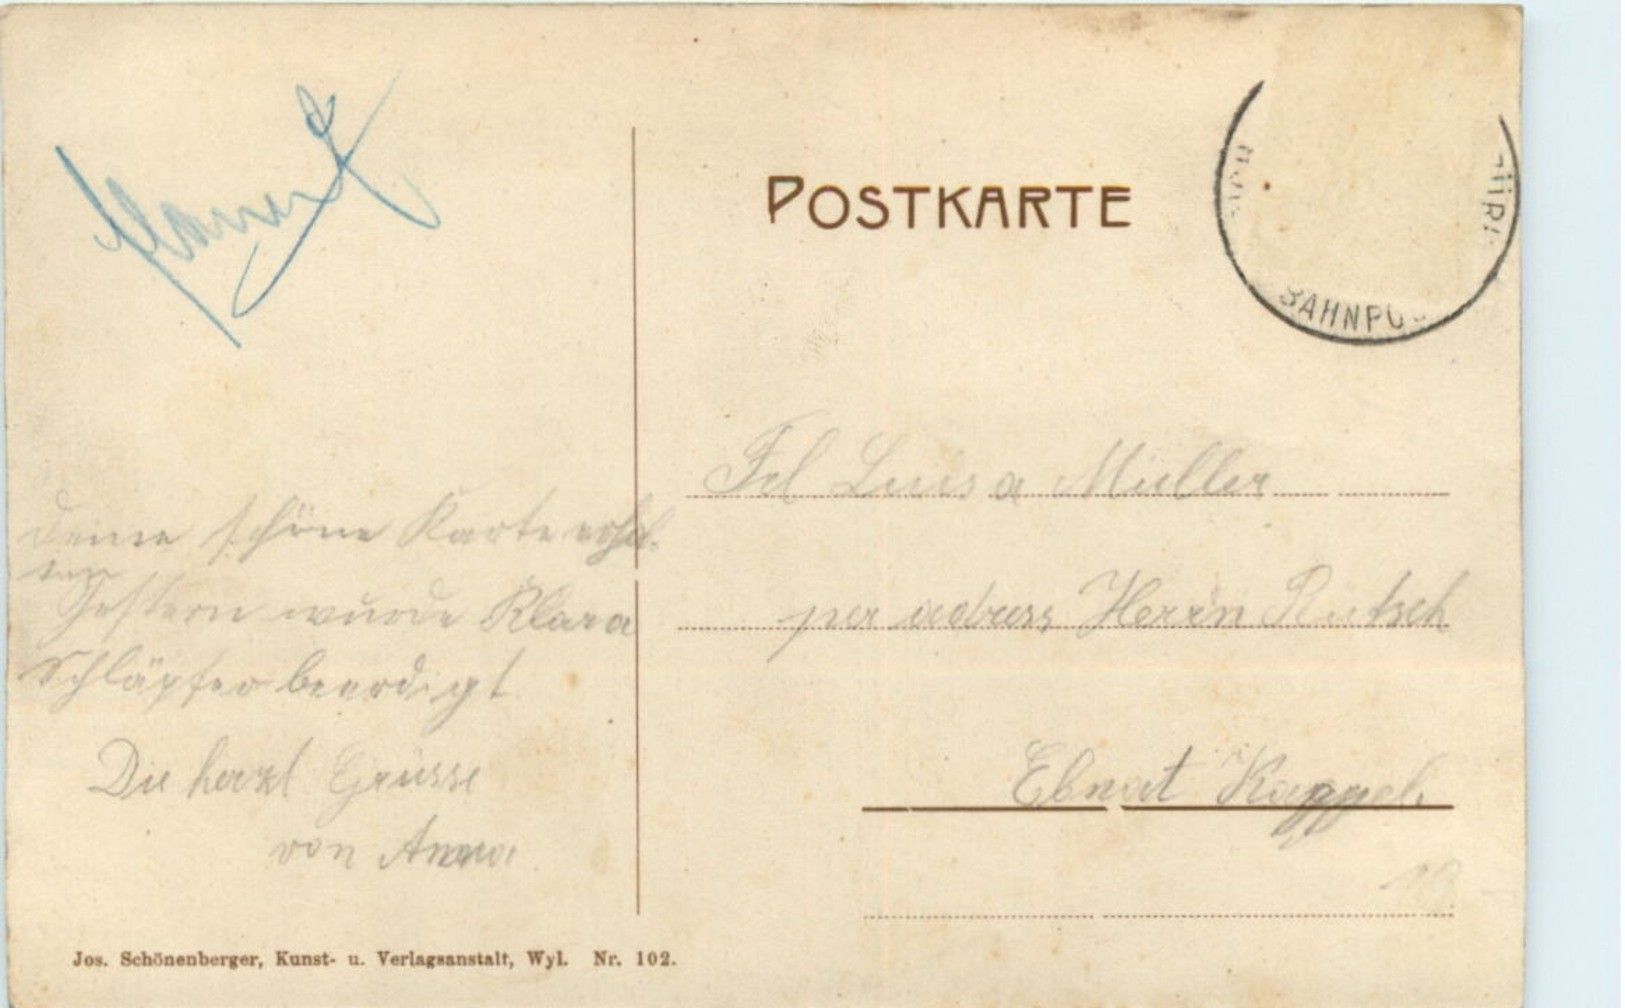 POSTKARTE
BAHNPO
Deine schöne Karte erhal-
ten
Gestern wurde Klara
Schläpfer beerdigt
Die herzl Grüsse
von Anna
Frl Luisa Müller
per adress Herrn Rutsch
Ebnat Kappel
Jos. Schönenberger, Kunst- u. Verlagsanstalt, Wyl. Nr. 102.